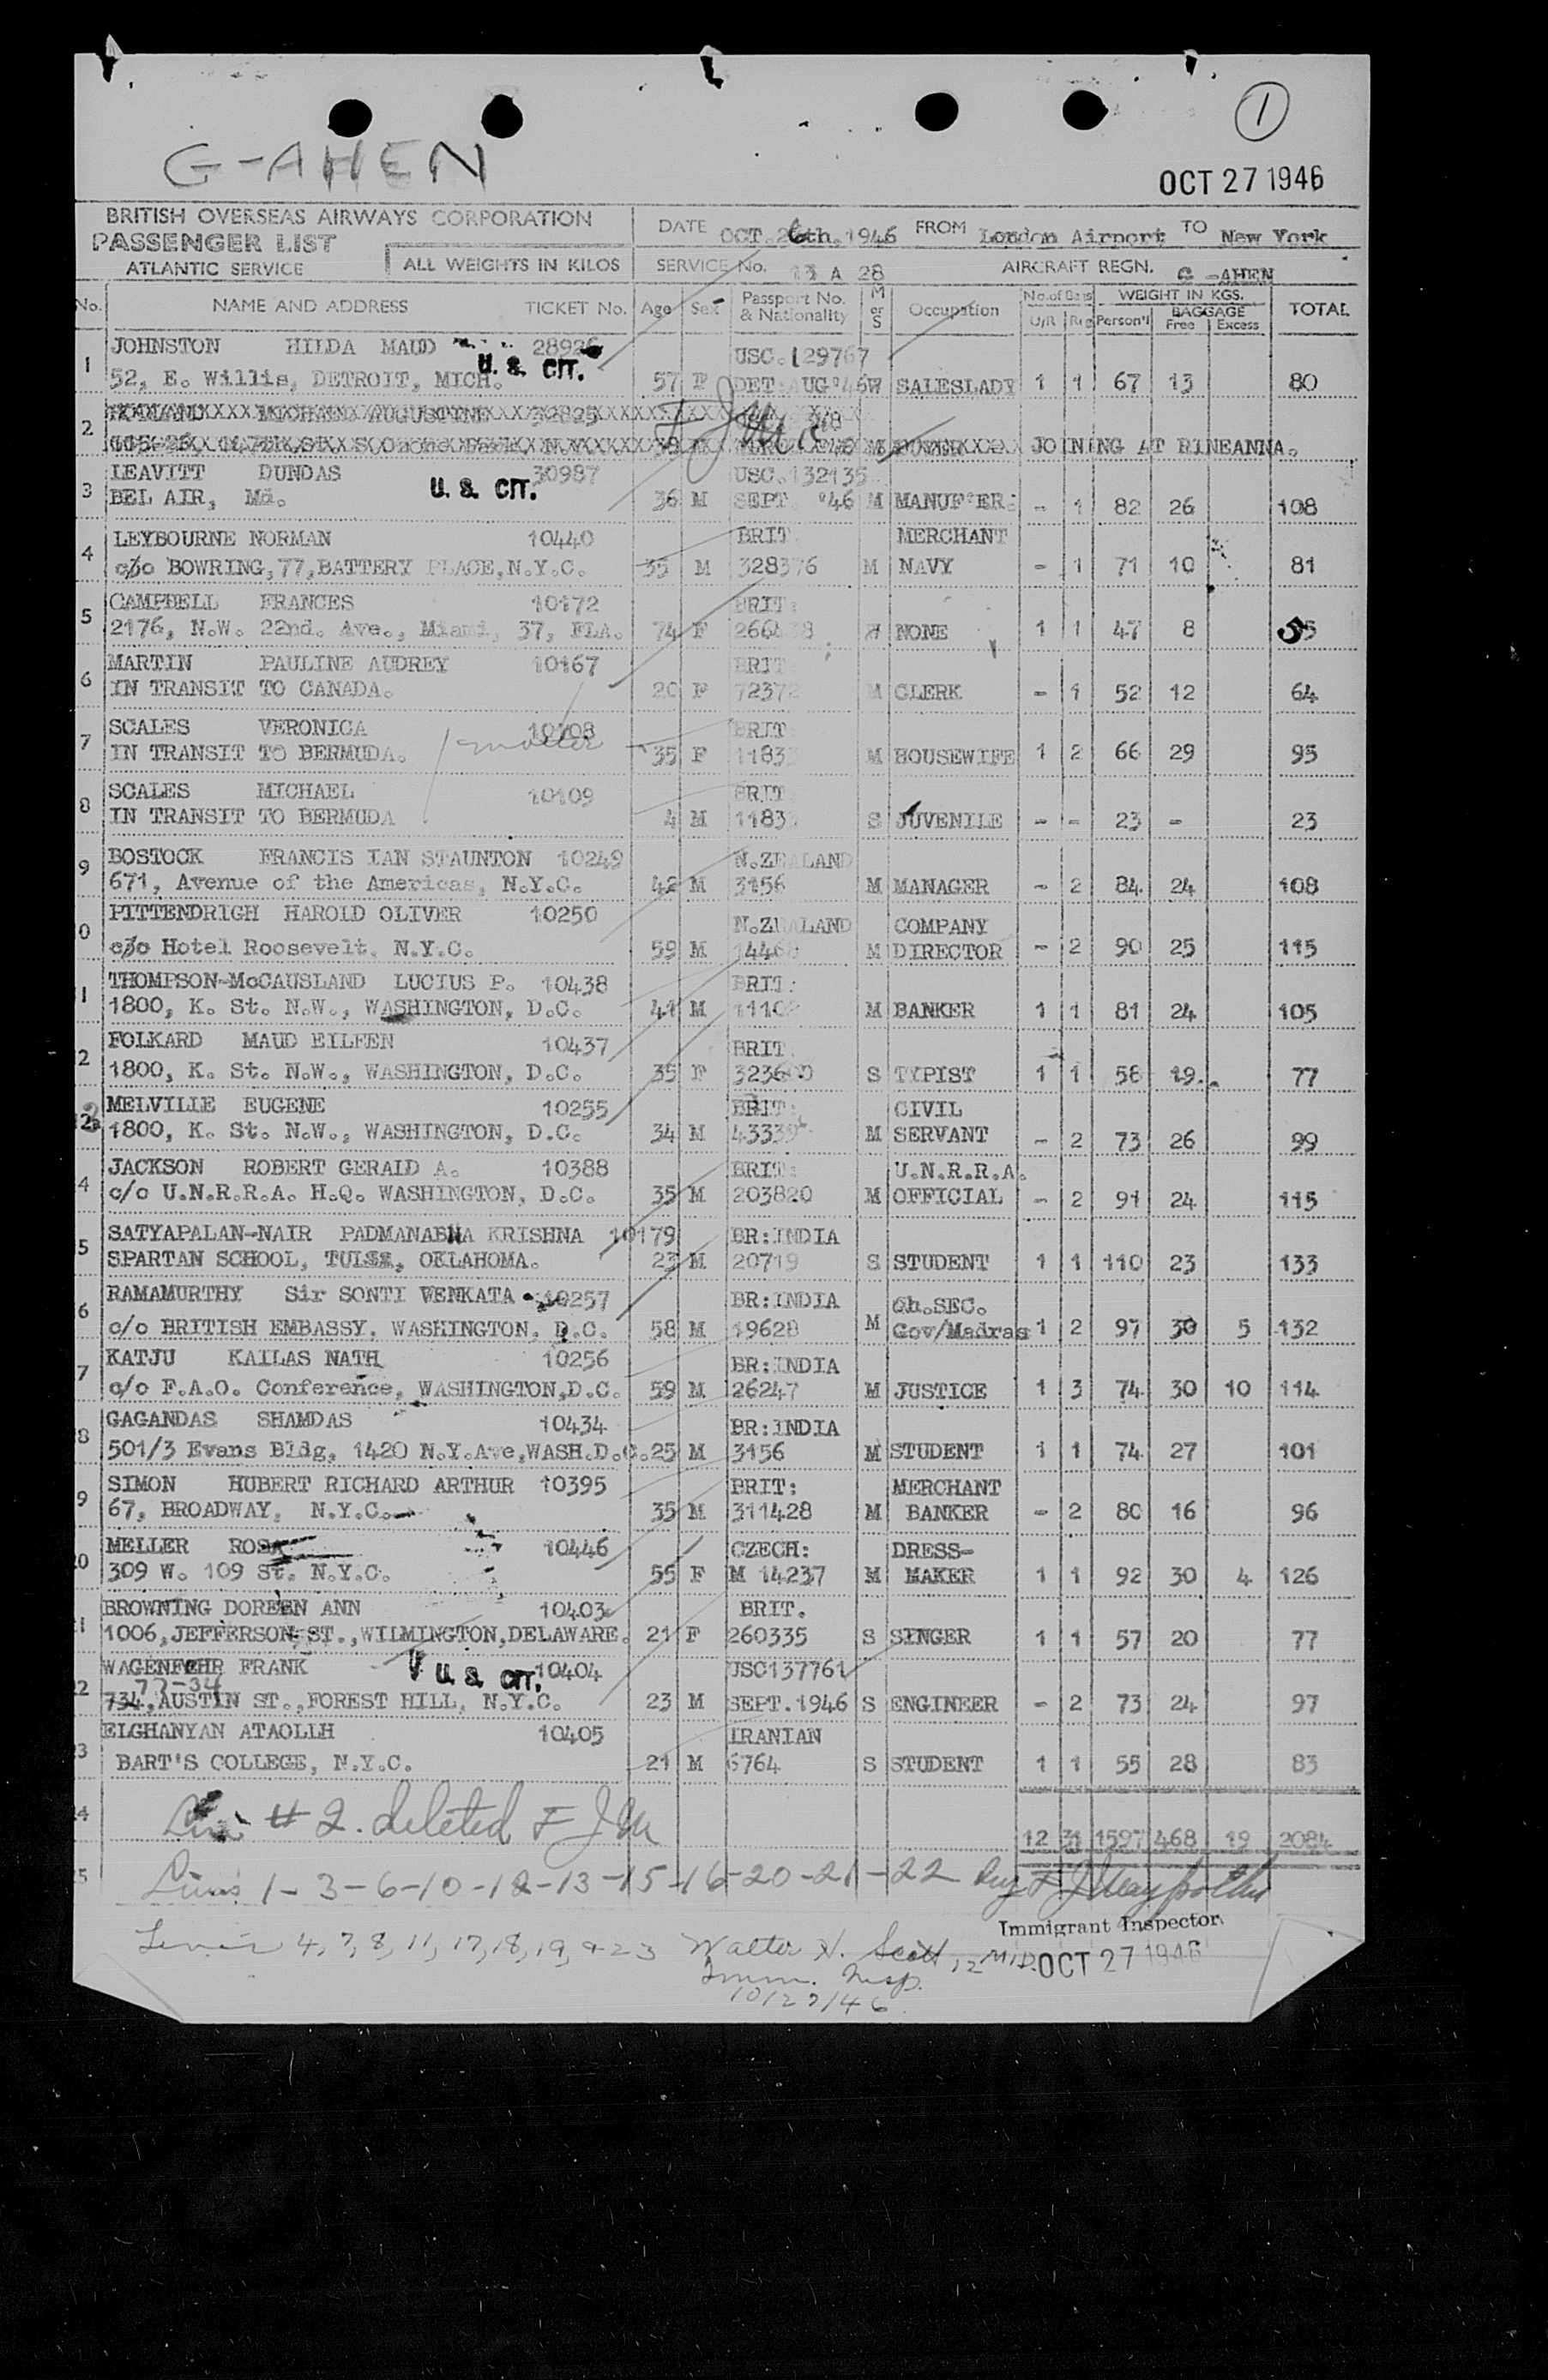 1
G-AHEN
OCT 27 1946
BRITISH OVERSEAS AIRWAYS CORPORATION
PASSENGER LIST
ATLANTIC SERVICE
ALL WEIGHTS IN KILOS
DATE OCT. 26th. 1946 FROM London Airport TO New York
SERVICE No. 11 A 28 AIRCRAFT REGN. G -AHEN
No. NAME AND ADDRESS TICKET No. Age Sex Passport No. & Nationality M or S Occupation No. of Bags U/R Reg WEIGHT IN KGS. Person'l BAGGAGE Free Excess TOTAL
JOHNSTON HILDA MAUD 2892 USC. 129767
1 52, E. Willis, DETROIT, MICH. U. S. CIT. 57 F DET: AUG '46 W SALESLADY 1 1 67 13 80
2 MICHAEL AUGUSTINE 32825
JOINING AT RINEANNA.
LEAVITT DUNDAS 30987 USC. 132135
3 BEL AIR, Md. U. S. CIT. 36 M SEPT '46 M MANUF'ER: - 1 82 26 108
LEYBOURNE NORMAN 10440 BRIT MERCHANT
4 c/o BOWRING, 77, BATTERY PLACE, N.Y.C. 35 M 328376 M NAVY - 1 71 10 81
CAMPBELL FRANCES 10172 BRIT:
5 2176, N.W. 22nd. Ave., Miami, 37, FLA. 74 F W NONE 1 1 47 8 55
MARTIN PAULINE AUDREY 10167 BRIT
6 IN TRANSIT TO CANADA. 20 F 7237 M CLERK - 1 52 12 64
SCALES VERONICA 10108 BRIT
7 IN TRANSIT TO BERMUDA. mother 35 F 1183 M HOUSEWIFE 1 2 66 29 95
SCALES MICHAEL 10109 BRIT
8 IN TRANSIT TO BERMUDA 4 M 1183 S JUVENILE - - 23 - 23
BOSTOCK FRANCIS IAN STAUNTON 10249 N.ZEALAND
9 671, Avenue of the Americas, N.Y.C. 42 M 3156 M MANAGER - 2 84 24 108
PITTENDRIGH HAROLD OLIVER 10250 N.ZEALAND COMPANY
0 c/o Hotel Roosevelt, N.Y.C. 59 M 1446 M DIRECTOR - 2 90 25 115
THOMPSON-McCAUSLAND LUCIUS P. 10438 BRIT:
1 1800, K. St. N.W., WASHINGTON, D.C. 41 M 1110 M BANKER 1 1 81 24 105
FOLKARD MAUD EILEEN 10437 BRIT
2 1800, K. St. N.W., WASHINGTON, D.C. 35 F 3236 S TYPIST 1 1 58 19. 77
MELVILLE EUGENE 10255 BRIT: CIVIL
12a 1800, K. St. N.W., WASHINGTON, D.C. 34 M 4333 M SERVANT - 2 73 26 99
JACKSON ROBERT GERALD A. 10388 BRIT: U.N.R.R.A.
4 c/o U.N.R.R.A. H.Q. WASHINGTON, D.C. 35 M 203820 M OFFICIAL - 2 91 24 115
SATYAPALAN-NAIR PADMANABHA KRISHNA 10179 BR:INDIA
5 SPARTAN SCHOOL, TULSA, OKLAHOMA. 23 M 20719 S STUDENT 1 1 110 23 133
RAMAMURTHY Sir SONTI VENKATA 10257 BR:INDIA Ch.SEC.
6 c/o BRITISH EMBASSY, WASHINGTON, D.C. 58 M 19628 M Gov/Madras 1 2 97 30 5 132
KATJU KAILAS NATH 10256 BR:INDIA
7 c/o F.A.O. Conference, WASHINGTON, D.C. 59 M 26247 M JUSTICE 1 3 74 30 10 114
GAGANDAS SHAMDAS 10434 BR:INDIA
8 501/3 Evans Bldg, 1420 N.Y.Ave,WASH.D.C. 25 M 3156 M STUDENT 1 1 74 27 101
SIMON HUBERT RICHARD ARTHUR 10395 BRIT: MERCHANT
9 67, BROADWAY, N.Y.C. 35 M 311428 M BANKER - 2 80 16 96
MELLER ROSA 10446 CZECH: DRESS-
20 309 W. 109 St. N.Y.C. 55 F M 14237 M MAKER 1 1 92 30 4 126
BROWNING DOREEN ANN 10403 BRIT.
1 1006,JEFFERSON ST.,WILMINGTON,DELAWARE. 21 F 260335 S SINGER 1 1 57 20 77
WAGENFEHR FRANK U. S. CIT. 10404 USC137761
77-34
22 734, AUSTIN ST., FOREST HILL, N.Y.C. 23 M SEPT. 1946 S ENGINEER - 2 73 24 97
ELGHANYAN ATAOLLH 10405 IRANIAN
23 BART'S COLLEGE, N.Y.C. 21 M 6764 S STUDENT 1 1 55 28 83
4 Line # 2. deleted FJM
12 31 1597 468 19 2084
5 Lines 1-3-6-10-12-13-15-16-20-21-22
Immigrant Inspector
Lines 4, 7, 8, 11, 17, 18, 19, & 23 Walter H. Scott
OCT 27 1946
Imm. Insp.
10/27/46